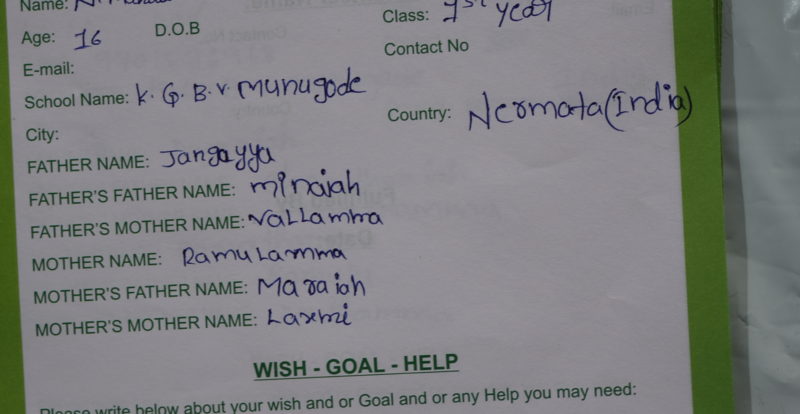 Name: N.
Class: 1st year
Age: 16 D.O.B
Contact No
E-mail:
School Name: K. G. B. V munugode
Country: Nermata (India)
City:
FATHER NAME: Jangayya
FATHER'S FATHER NAME: minaiah
FATHER'S MOTHER NAME: vallamma
MOTHER NAME: Ramulamma
MOTHER'S FATHER NAME: Maraiah
MOTHER'S MOTHER NAME: Laxmi
WISH - GOAL - HELP
Please write below about your wish and or Goal and or any Help you may need: